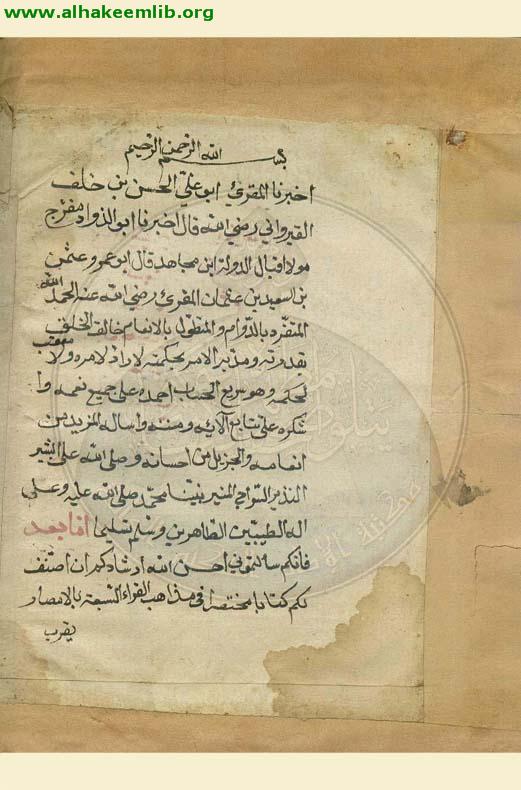 www.alhakeemlib.org
بسم الله الرحمن الرحيم
اخبرنا المقرئ ابو علي الحسن بن خلف
القيرواني رضي الله قال اخبرنا ابو الذواد مفرج
مولا اقبال الدولة ابن مجاهد قال ابو عمرو عثمن
بن السعيد بن عثمان المقرئ رضي الله عنه الحمد لله
المتفرد بالدوام والمتطول بالانعام خالق الخلق
بقدرته ومدبر الامر بحكمته لا راد لامره ولا معقب
لحكمه وهو سريع الحساب احمده على جميع نعمه وا
شكره على تتابع آلائه ومننه واساله المزيد من
انعامه والجزيل من احسانه وصلى الله على البشير
النذير السراج المنير نبينا محمد صلى الله عليه وعلى
اله الطيبين الطاهرين وسلم تسليما اما بعد
فانكم سالتموني احسن الله ارشادكم ان اصنف
لكم كتابا مختصرا في مذاهب القراء السبعة بالامصار
يقرب